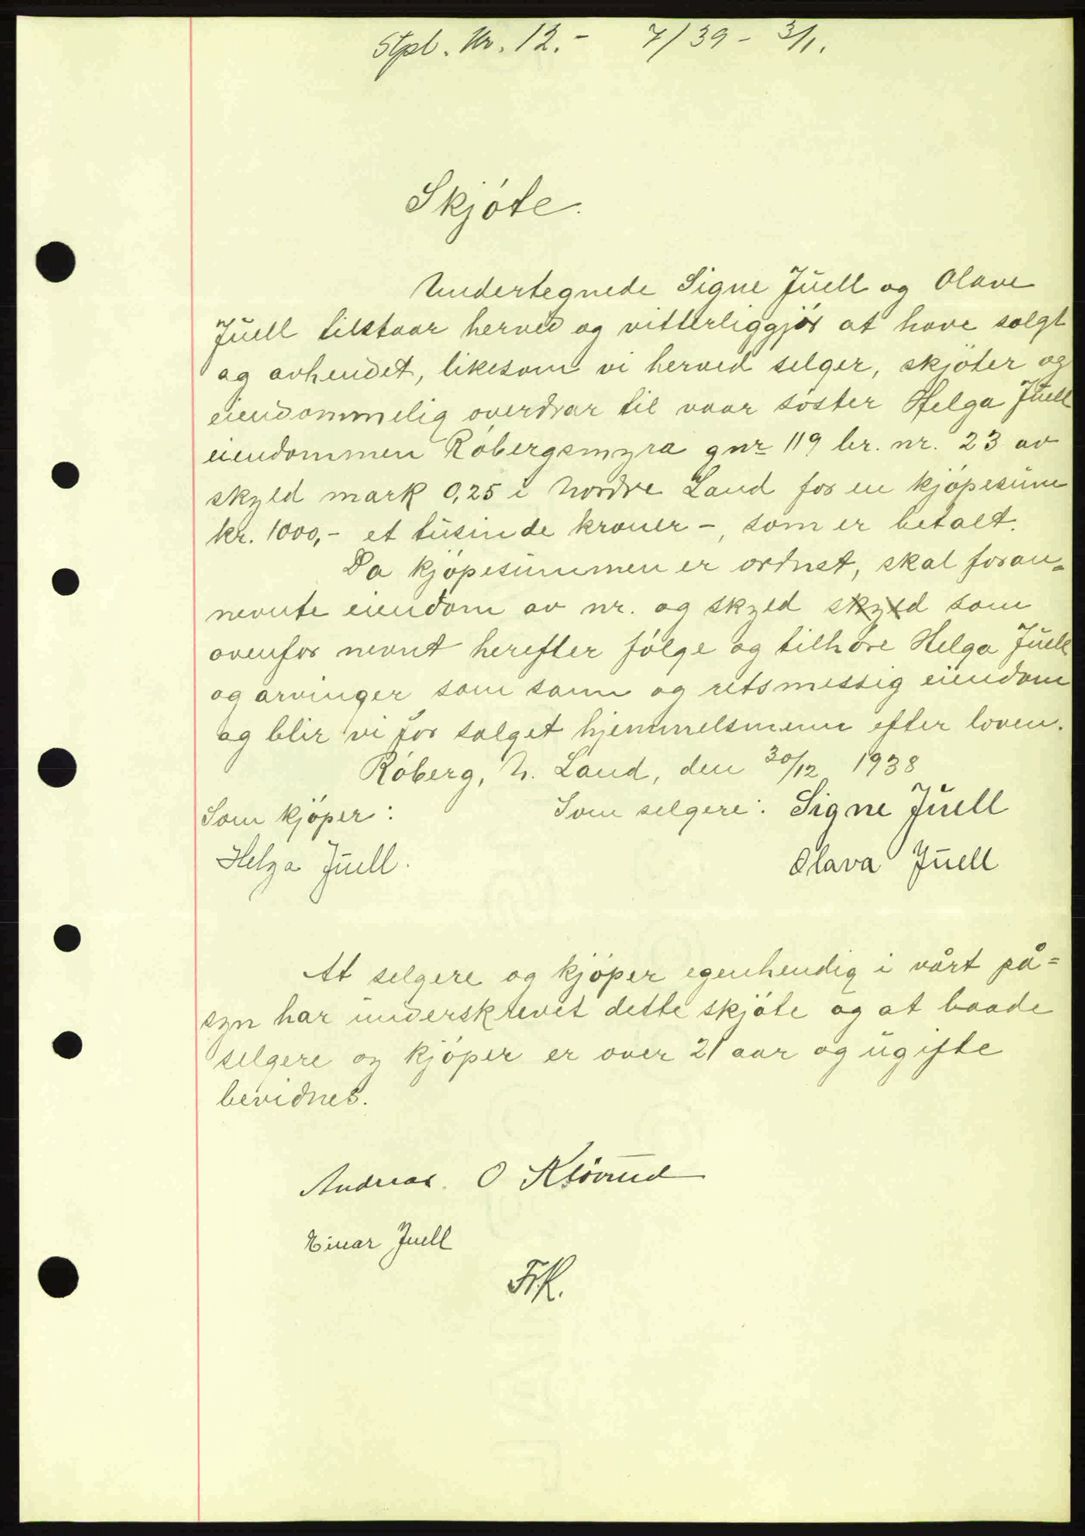 Stpl. Nr. 12.- 7/39 - 3/1.
Skjóte.
Undertegnede Signe Juell og Olave
Juell tilstaar herved og vitterliggjór at have solgt
og avhendet, likesom vi herved selger, skjóter og
eiendommelig overdrar til vaar sóster Helga Juell
eiendommen Róbergsmyra gnr 119 br. nr. 23 av
skyld mark 0,25 i Nordre Land for en kjópesum
kr. 1000,- et tusinde kroner -, som er betalt.
Da kjópesummen er ordnet, skal foran-
nevnte eiendom av nr. og skyld skyld som
ovenfor nevnt herefter fólge og tilhóre Helga Juell
og arvinger som sann og retsmessig eiendom
og blir vi for salget hjemmelsmenn efter loven.
Róberg, N. Land, den 30/12 1938
Som kjóper: Som selgere: Signe Juell
Helga Juell. Olava Juell
At selgere og kjóper egenhendig i vårt på=
syn har underskrevet dette skjóte og at baade
selgere og kjóper er over 21 aar og ugifte
bevidnes.
Andreas O Klóvrud
Einar Juell
Fr.R.